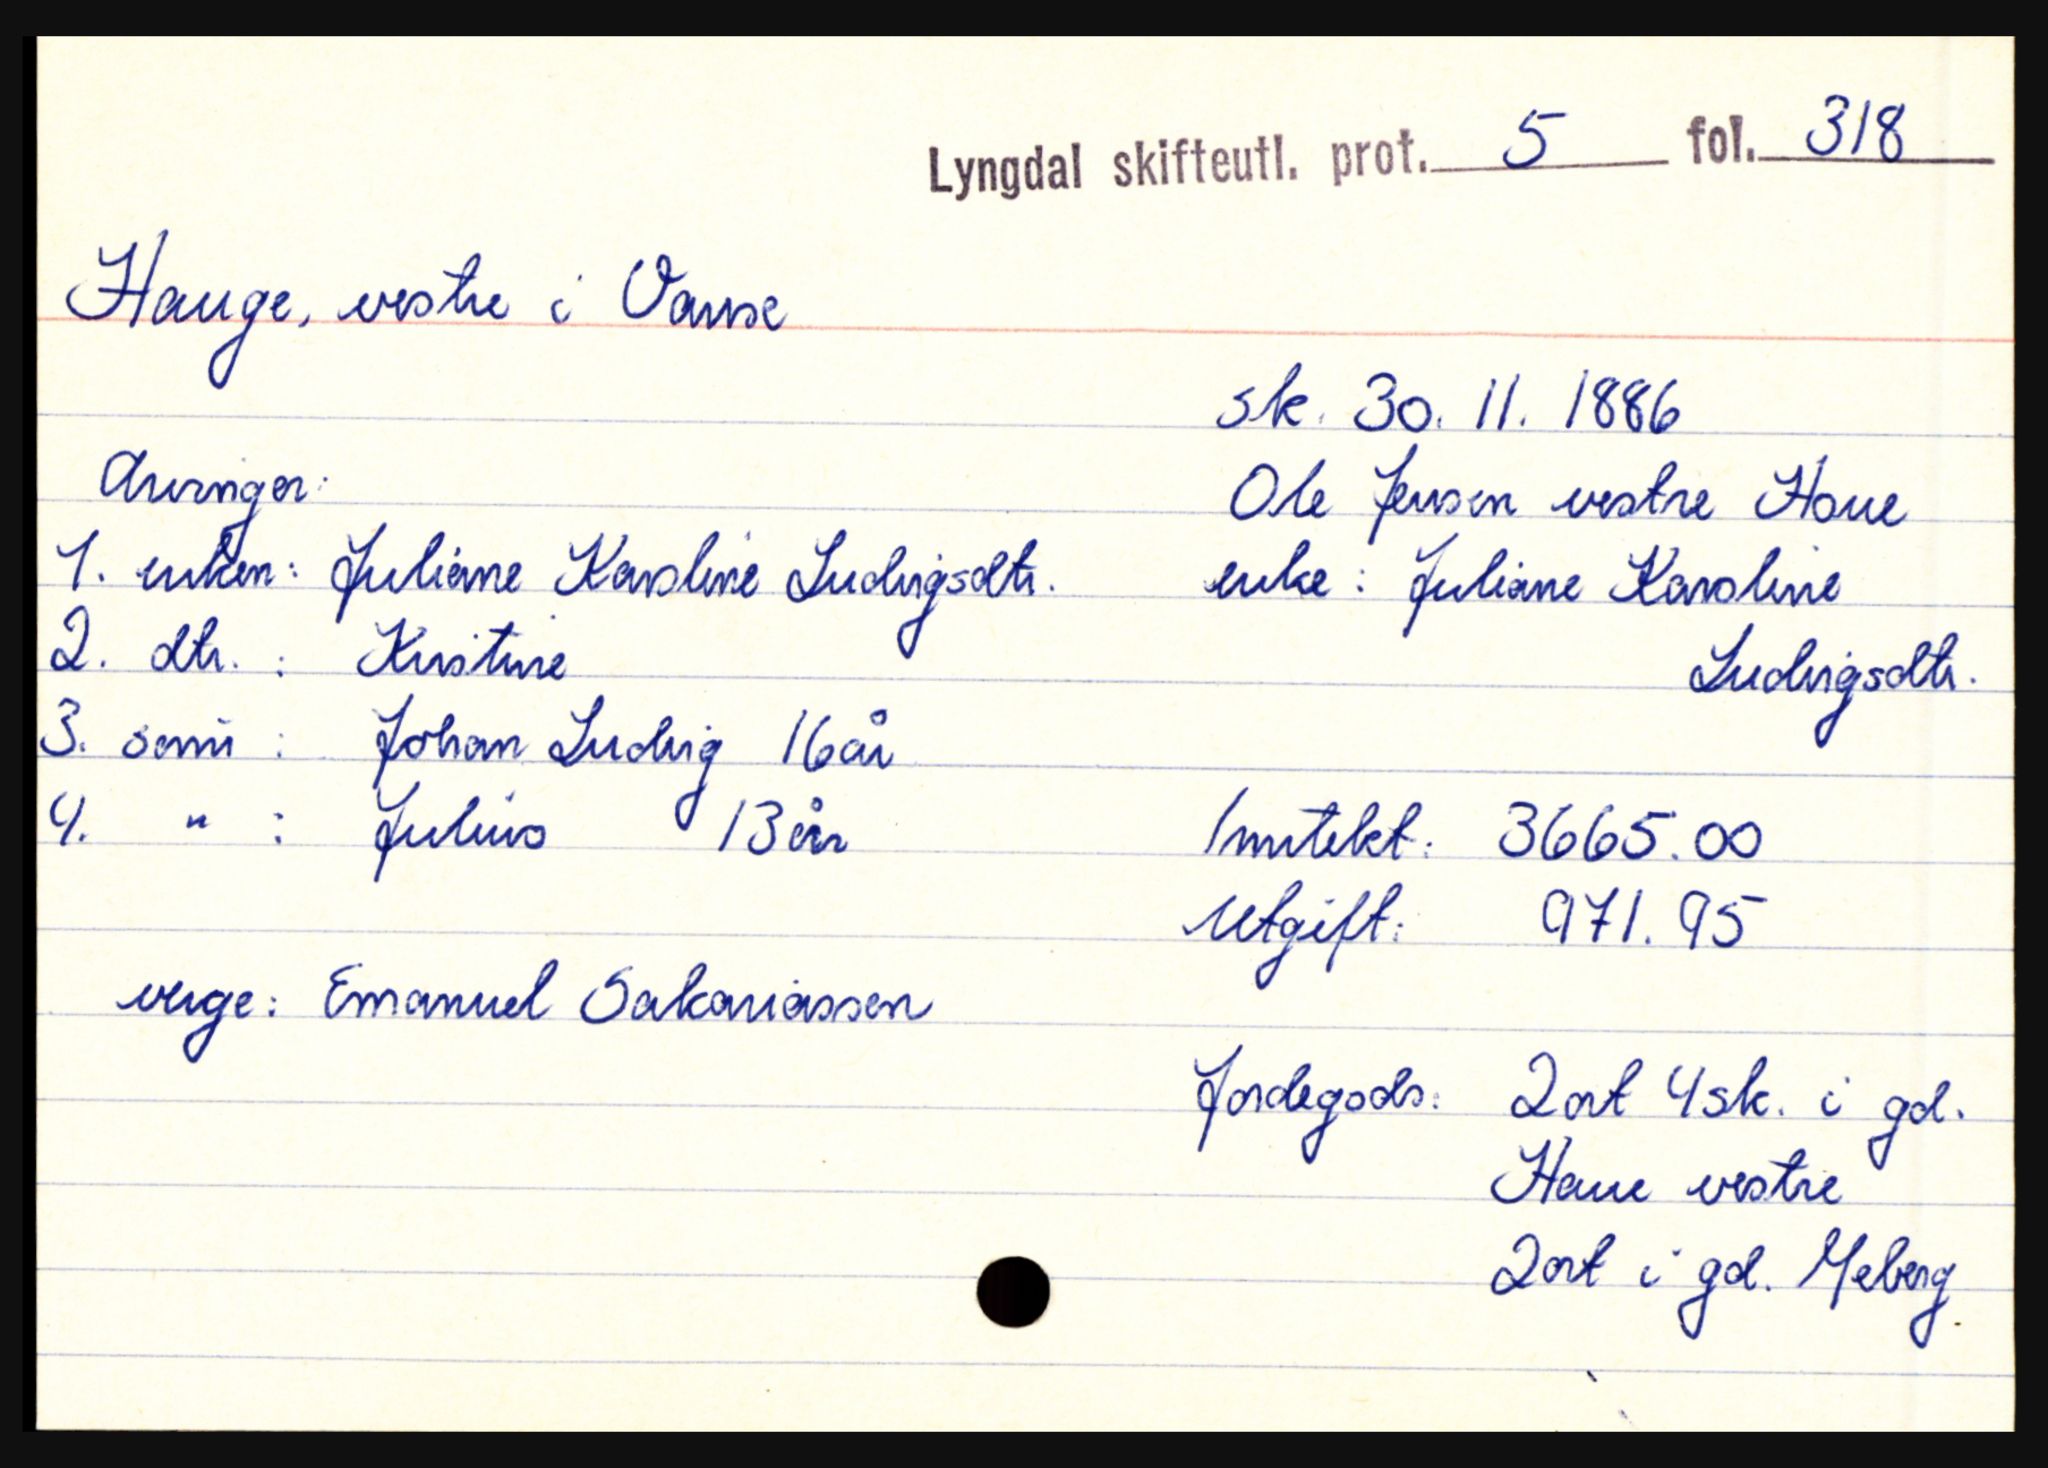 Lyngdal skifteutl. prot. 5 fol. 318
Hauge, vestre i Vanse
sk. 30. 11. 1886
Ole Jensen vestre Haue
enke: Juliane Karoline
Ludvigsdtr.
Arvinger:
1. enken: Juliane Karoline Ludvigsdtr.
2. dtr. : Kristine
3. sønn : Johan Ludvig 16 år
4. " : Julius 13 år
verge: Emanuel Sakariassen
Inntekt: 3665.00
Utgift: 971.95
Jordegods: 2 ort 4 sk. i gd.
Haue vestre
2 ort i gd. Meberg